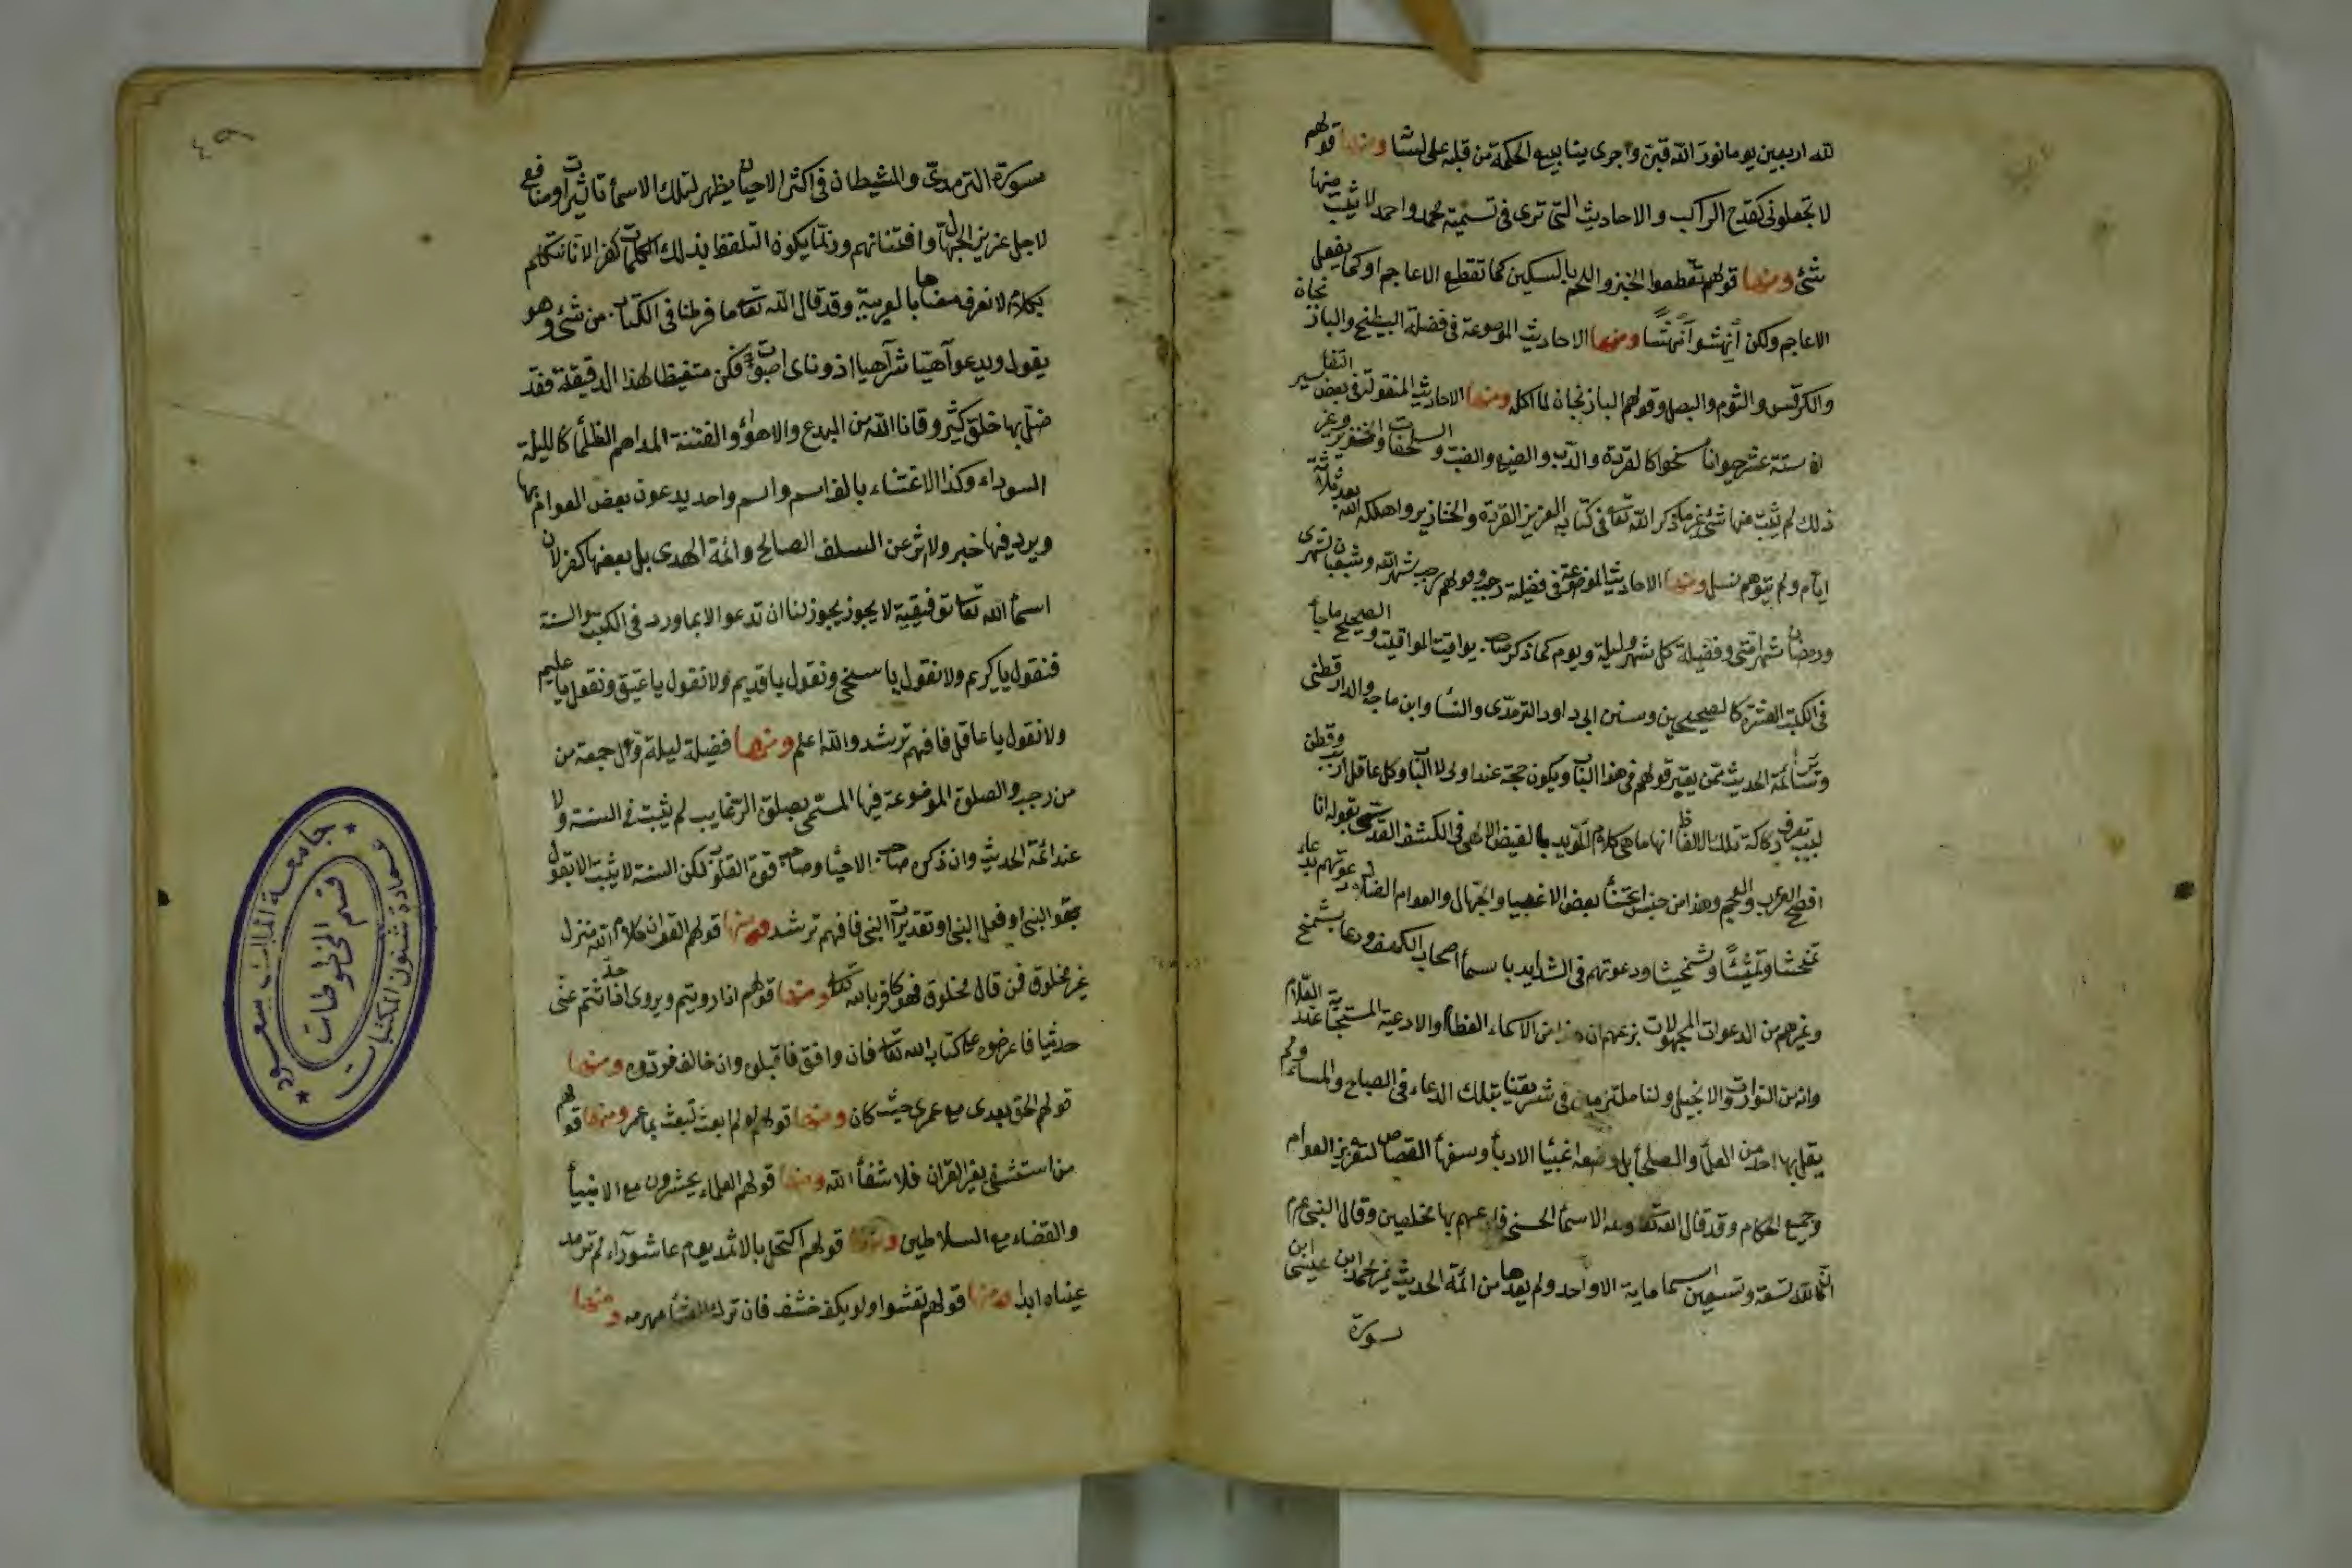 لله اربعين يوما نور الله قبره واجرى ينابيع الحكمة من قبله على لسا ومنها قولهم
لا تجعلونى كقدح الراكب والاحاديث التى ترى فى تسمية محمد واحمد لا يثبت منها
شئ ومنها قولهم تقطعوا الخبز واللحم بالسكين كما تقطع الاعاجم او كما يفعل
الاعاجم ولكن انهشوا نهشا ومنها الاحاديث الموضوعة فى فضيلة البطيخ والباذنجان
والكرفس والثوم والبصل وقولهم الباذنجان لما اكله ومنها الاحاديث المنقولة فى بعض التفاسير
ان ستة عشر حيوانا مسخوا كالقردة والدب والضبع والضب والسلحفات والخنزير وغير
ذلك لم يثبت منها شئ غير ما ذكر الله تعا فى كتابه العزيز القردة والخنازير واهلكه الله بعد ثلاثة
ايام ولم يتوهم نسل ومنها الاحاديث الموضوعة فى فضيلة رجب وقولهم رجب شهر الله وشعبان شهرى
ورمضان شهر امتى وفضيلة كل شهر وليلة ويوم كما ذكر صا يواقيت المواقيت والصحيح ما جأ
فى الكتب العشرة كالصحيحين وسنن ابى داود الترمذى والنسا وابن ماجه والدارقطنى
وسائر ائمة الحديث ممن يعتبر قولهم فى هذا الباب ويكون حجة عند اولى الالباب وكل عاقل اريب وفطن
لبيب يعرف ركاكة تلك الالفاظ انها ما هى كلام المؤيد بالفيض الالهى فى الكشف القدسى بقوله انا
افصح العرب والعجم وهذا من جنس اعتنأ بعض الاغبيا والجهال والعوام الضلال دعوتهم بدعاء
تمخيثا وتمثيثا وشمخيثا ودعوتهم فى الشدايد باسمأ اصحاب الكهف ودعا بشمخ
وغيرهم من الدعوات المجهولات بزعمهم ان هذا من الاسماء العظام والادعية المستجابة عند العلام
وانه من التورات والانجيل ولسنا ملتزمين فى شريعتنا بتلك الدعاء فى الصباح والمساء ولم
يقل بها احد من العلمأ والصلحأ بل وضعه اغبيا الادبأ وسفهأ القصاص لتغرير العوام
وجمع الحكام وقد قال الله تعا ولله الاسمأ الحسنى فادعوه بها مخلصين وقال النبى عم
ان لله تسعة وتسعين اسما ماية الا واحد ولم يعدها من ائمة الحديث غير محمد ابن عيسى ابن
سورة
٤٩
سورة الترمدى والشيطان فى اكثر الاحيان يظهر لتلك الاسمأ تاثيرات ومنافع
لاجل غرير الجهال وافتنانهم وربما يكون التلفظ بذلك الكلمات كفر الانا نتكلم
بكلام لا نعرف معناها بالعربية وقد قال الله تعا ما فرطنا فى الكتاب من شئ وهو
يقول ويدعوا آهيا شرآهيا اذوناى اصبؤت فكن متيقظا لهذا الدقيقة فقد
ضل بها خلق كثير وقانا الله من البدع والاهوأ والفتنة المداهم الظلمأ كالليلة
السوداء وكذا الاعتناء بالف اسم واسم واحد يدعون بعض العوام بها
ويرد فيها خبر ولا اثر عن السلف الصالح وائمة الهدى بل بعضها كفر لان
اسمأ الله تعا توقيفية لا يجوز يجوز لنا ان تدعو الا بما ورد فى الكتب والسنة
فنقول يا كريم ولا نقول يا سخى ونقول يا قديم ولا نقول يا عتيق ونقول يا عليم
ولا نقول يا عاقل فافهم ترشد والله اعلم ومنها فضيلة ليلة اول جمعة من
من رجب والصلوة الموضوعة فيها المسمى بصلوة الرغايب لم يثبت فى السنة ولا
عند ائمة الحديث وان ذكر صاحب الاحيا وصاحب قوة القلوب لكن السنة لا يثبت الا بقول
النبى او فعل النبى او تقديرات النبى فافهم ترشد ومنها قولهم القران كلام الله منزل
غير مخلوق فمن قال مخلوق فهو كافر بالله ومنها قولهم اذا رويتم ويروى اذا حدثتم عنى
حديثا فاعرضوه على كتاب الله تعا فان وافق فاقبلوه وان خالف فردوه ومنها
قولهم الحق بعدى مع عمر حيث كان ومنها قولهم لو لم ابعث لبعث بما عمر ومنها قولهم
من استشفى بغير القران فلا شفأ الله ومنها قولهم العلماء يحشرون مع الانبيأ
والقضاء مع السلاطين ومنها قولهم اكتحل بالاثمد يوم عاشوراء لم ترمد
عيناه ابدا ومنها قولهم تعشوا ولو بكف حشف فان ترك العشأ مهرمه ومنها
جامعة الملك سعود
عمادة شئون المكتبات
قسم المخطوطات